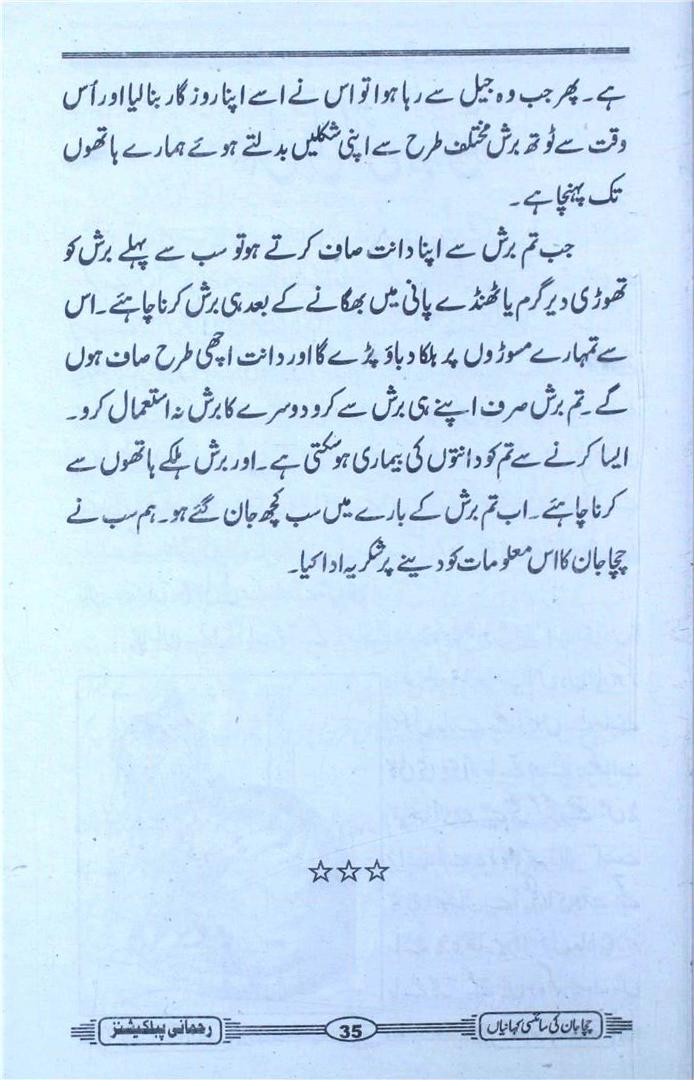 ہے۔ پھر جب وہ جیل سے رہا ہوا تو اس نے اسے اپنا روزگار بنا لیا اور اُس
وقت سے ٹوتھ برش مختلف طرح سے اپنی شکلیں بدلتے ہوئے ہمارے ہاتھوں
تک پہنچا ہے۔
جب تم برش سے اپنا دانت صاف کرتے ہو تو سب سے پہلے برش کو
تھوڑی دیر گرم یا ٹھنڈے پانی میں بھگانے کے بعد ہی برش کرنا چاہئے۔ اس
سے تمہارے مسوڑوں پر ہلکا دباؤ پڑے گا اور دانت اچھی طرح صاف ہوں
گے۔ تم برش صرف اپنے ہی برش سے کرو دوسرے کا برش نہ استعمال کرو۔
ایسا کرنے سے تم کو دانتوں کی بیماری ہو سکتی ہے۔ اور برش ہلکے ہاتھوں سے
کرنا چاہئے۔ اب تم برش کے بارے میں سب کچھ جان گئے ہو۔ ہم سب نے
چچا جان کا اس معلومات کو دینے پر شکریہ ادا کیا۔
☆☆☆
چچا جان کی سائنسی کہانیاں 35 رحمانی پبلکیشنز